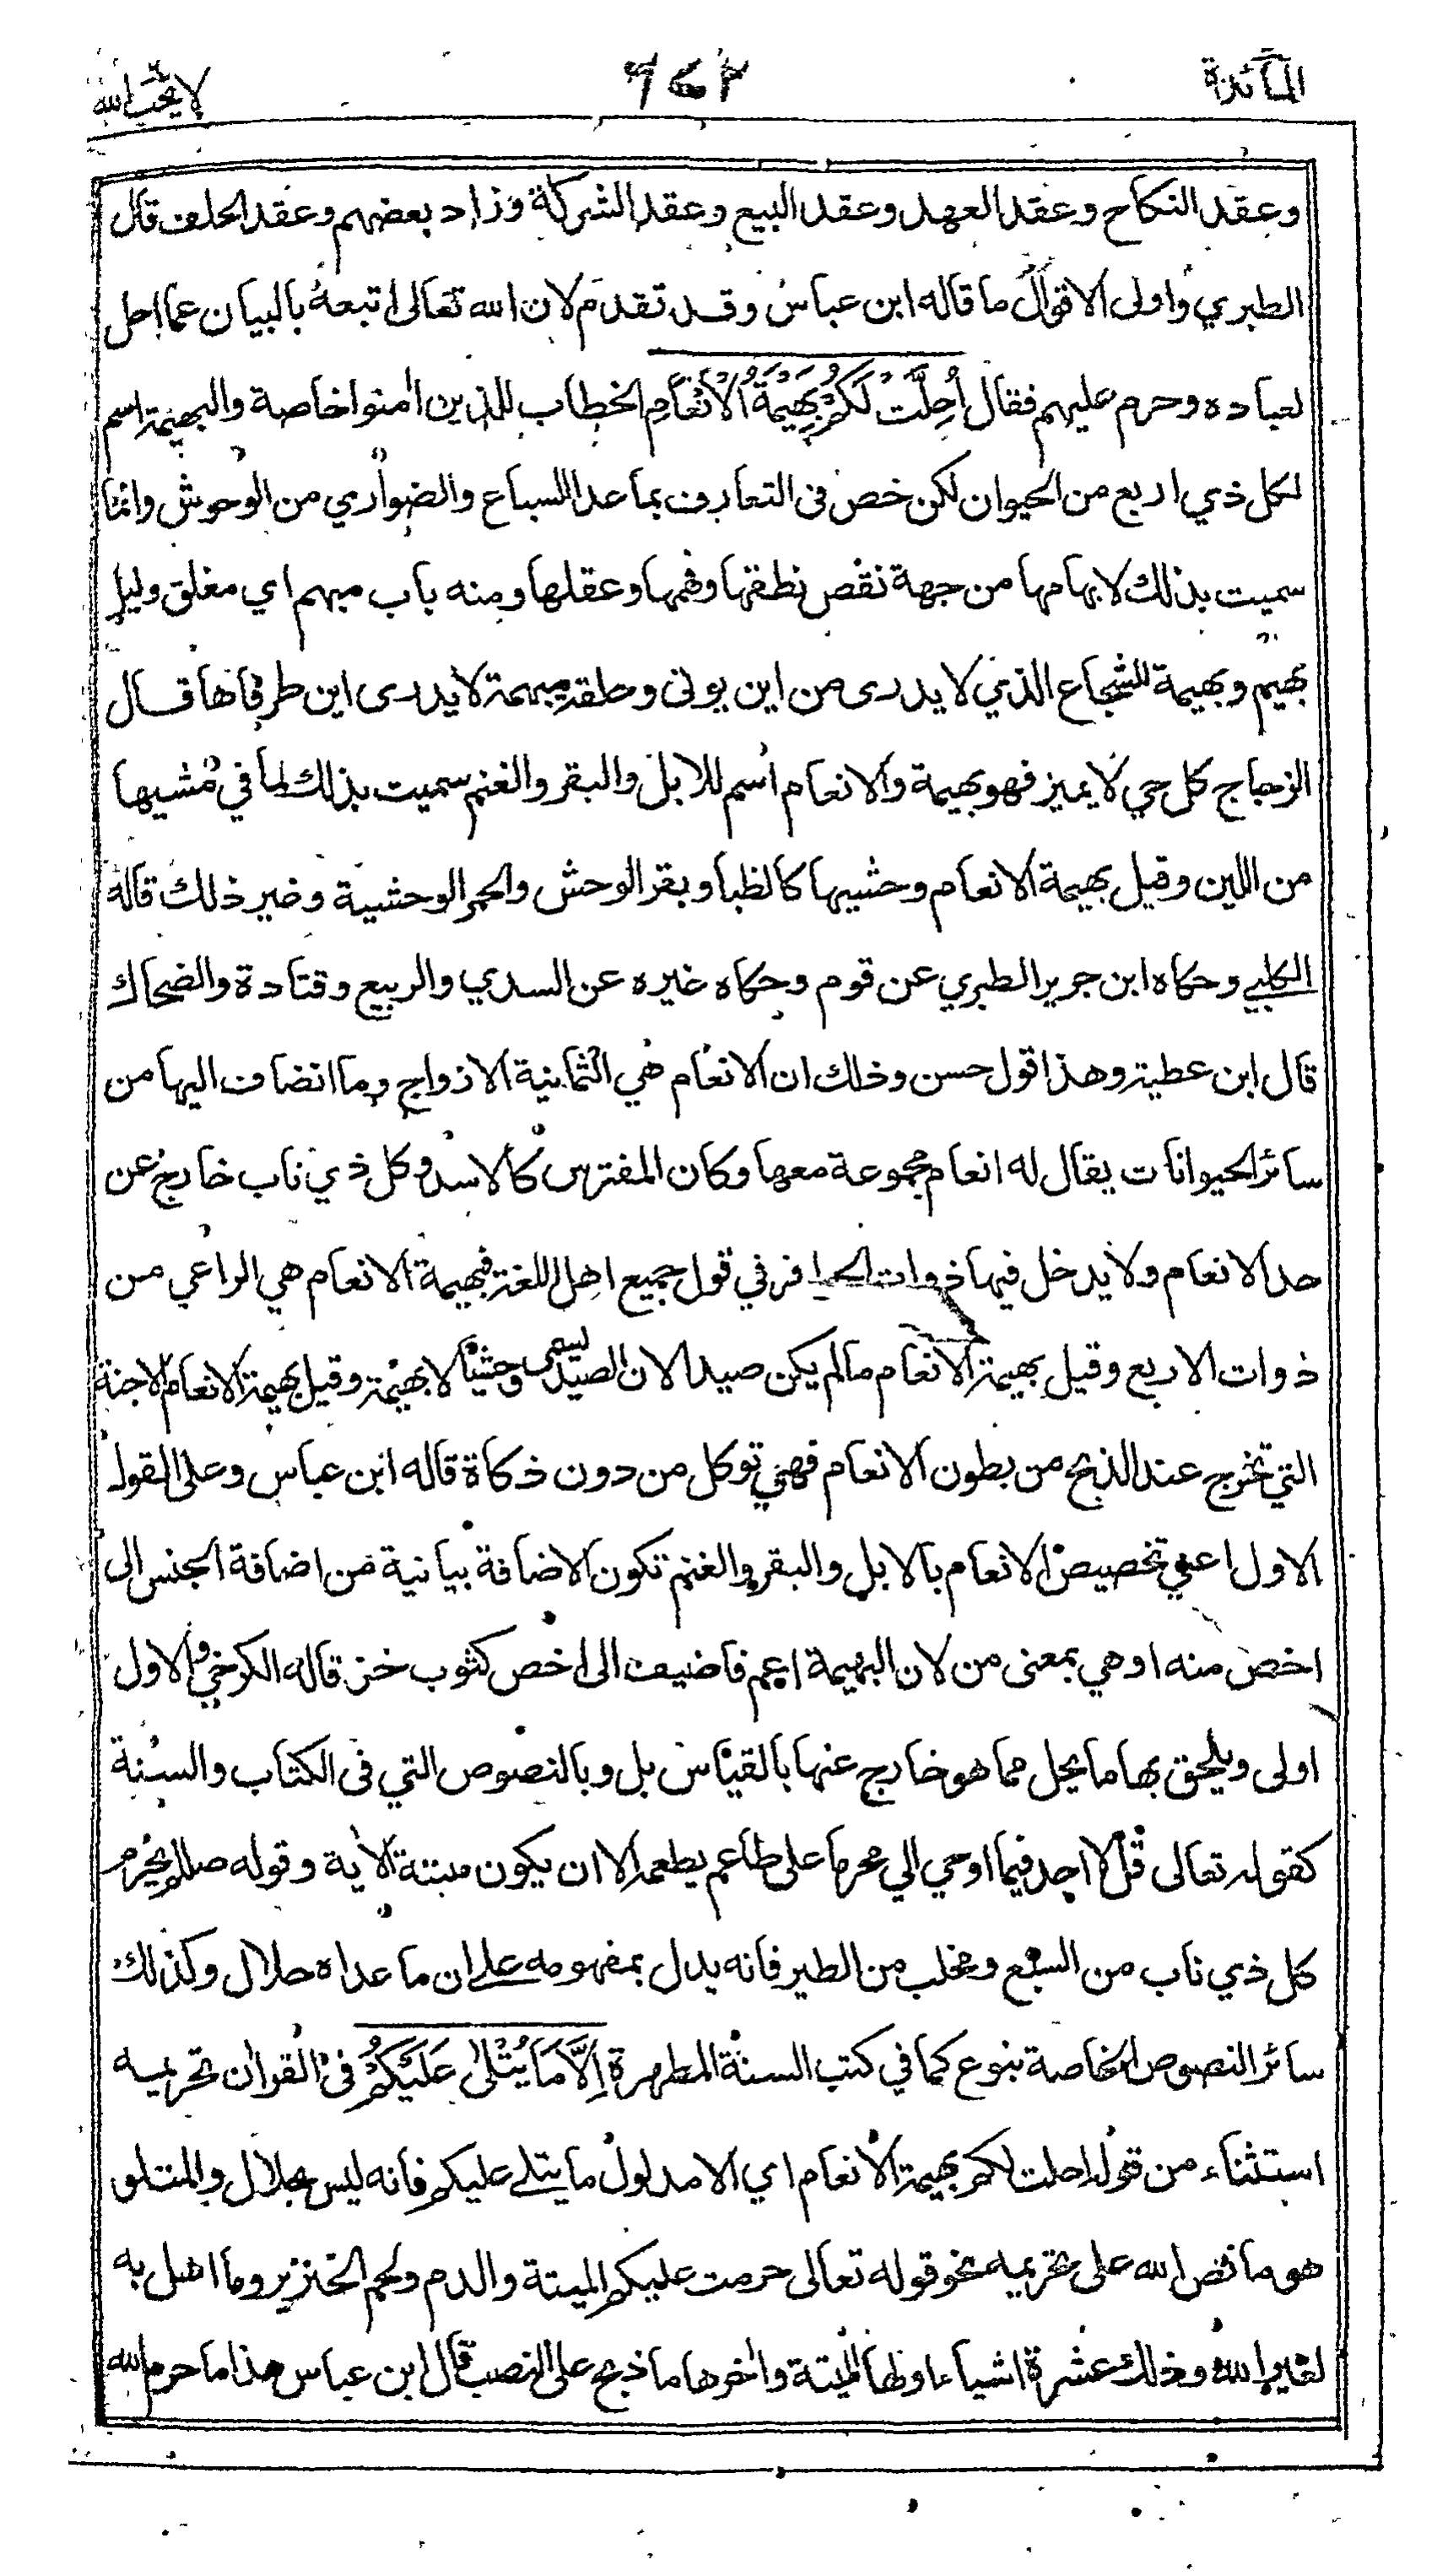 المآئدة
٦٤٢
لا يحب الله
وعقد النكاح وعقد العهد وعقد البيع وعقد الشركة وزاد بعضهم وعقد الحلف قال
الطبري واولى الاقوال ما قاله ابن عباس وقد تقدم لان الله تعالى اتبعه بالبيان عما احل
لعباده وحرم عليهم فقال أُحِلَّتْ لَكُمْ بَهِيمَةُ الْأَنْعَامِ الخطاب للذين اٰمنوا خاصة والبهيمة اسم
لكل ذي اربع من الحيوان لكن خص فى التعارف بما عدا السباع والضواري من الوحوش وانما
سميت بذلك لابهامها من جهة نقص نطقها وفهمها وعقلها ومنه باب مبهم اي مغلق وليل
بهيم وبهيمة للشجاع الذي لا يدرى من اين يوتى وحلقة مبهمة لا يدرى اين طرفاها قال
الزجاج كل حي لا يميز فهو بهيمة والانعام اسم للابل والبقر والغنم سميت بذلك لما في مشيها
من اللين وقيل بهيمة الانعام وحشيها كالظبا وبقر الوحش والحمر الوحشية وغير ذلك قاله
الكلبي وحكاه ابن جرير الطبري عن قوم وحكاه غيره عن السدي والربيع وقتادة والضحاك
قال ابن عطية وهذا قول حسن وذلك ان الانعام هي الثمانية الازواج وما انضاف اليها من
سائر الحيوانات يقال له انعام مجموعة معها وكان المفترس كالاسد وكل ذي ناب خارج عن
حد الانعام ولا يدخل فيها ذوات الحوافر في قول جميع اهل اللغة فبهيمة الانعام هي الراعي من
ذوات الاربع وقيل بهيمة الانعام ما لم يكن صيدا لان الصيد يسمى وحشيا لا بهيمة وقيل بهيمة الانعام الاجنة
التي تخرج عند الذبح من بطون الانعام فهي توكل من دون ذكاة قاله ابن عباس وعلى القول
الاول اعني تخصيص الانعام بالابل والبقر والغنم تكون الاضافة بيانية من اضافة الجنس الى
اخص منه او هي بمعنى من لان البهيمة اعم فاضيف الى اخص كثوب خز قاله الكرخي والاول
اولى ويلحق بها ما يحل مما هو خارج عنها بالقياس بل وبالنصوص التي فى الكتاب والسنة
كقوله تعالى قل لا اجد فيما اوحي الي محرما على طاعم يطعمه الا ان يكون ميتة الاٰية وقوله صللم يحرم
كل ذي ناب من السبع ومخلب من الطير فانه يدل بمفهومه على ان ما عداه حلال وكذلك
سائر النصوص الخاصة بنوع كما في كتب السنة المطهرة إِلَّا مَا يُتْلٰى عَلَيْكُمْ فى القراٰن تحريمه
استثناء من قوله احلت لكم بهيمة الانعام اي الا مدلول ما يتلى عليكم فانه ليس بحلال والمتلو
هو ما نص الله على تحريمه نحو قوله تعالى حرمت عليكم الميتة والدم ولحم الخنزير وما اهل به
لغير الله وذلك عشرة اشياء اولها الميتة واٰخرها ما ذبح على النصب قال ابن عباس هذا ما حرم الله